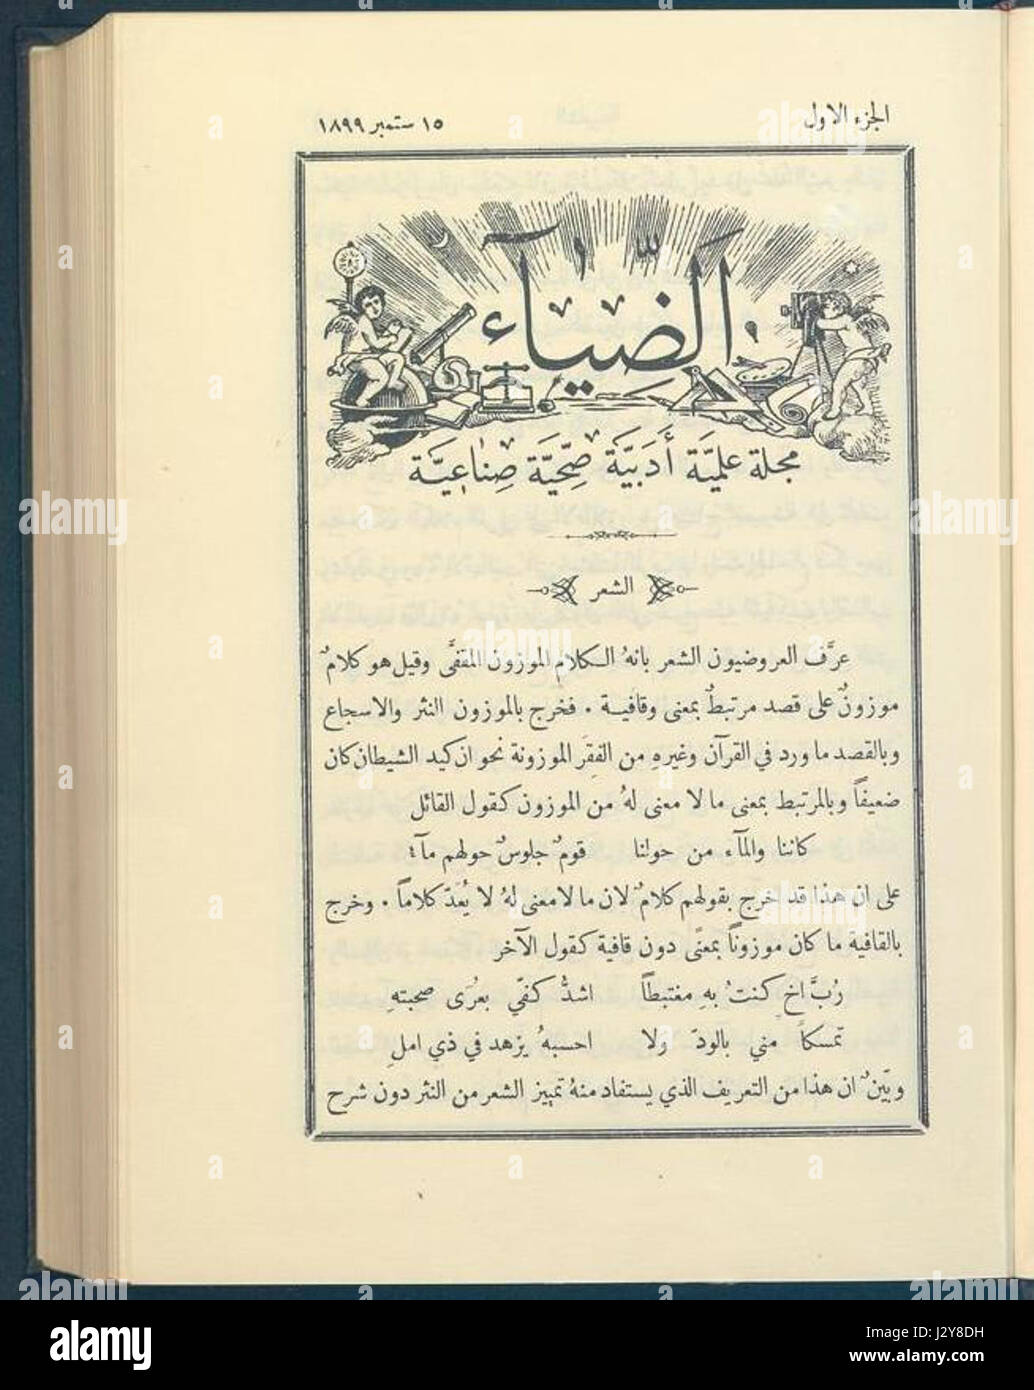 الجزء الاول
١٥ ستمبر ١٨٩٩
اَلضّيَآء
مجلة علميَّة أَدَبيَّة صِحّيَّة صِنَاعيَّة
الشعر
عرَّف العروضيون الشعر بانهُ الكلام الموزون المقفَّى وقيل هو كلامٌ
موزونٌ على قصد مرتبطٌ بمعنى وقافية . فخرج بالموزون النثر والاسجاع
وبالقصد ما ورد في القرآن وغيرهِ من الفِقَر الموزونة نحو ان كيد الشيطان كان
ضعيفاً وبالمرتبط بمعنى ما لا معنى لهُ من الموزون كقول القائل
كاننا والمآء من حولنا قومٌ جلوسٌ حولهم مآء
على ان هذا قد خرج بقولهم كلامٌ لان ما لا معنى لهُ لا يُعَدّ كلاماً . وخرج
بالقافية ما كان موزوناً بمعنًى دون قافية كقول الآخر
رُبَّ اخٍ كنتُ بهِ مغتبطاً اشدُّ كفّي بعُرَى صحبتهِ
تمسكاً مني بالودّ ولا احسبهُ يزهد في ذي املِ
وبيّنٌ ان هذا من التعريف الذي يستفاد منهُ تمييز الشعر من النثر دون شرح
alamy
alamy
Image ID: J2Y8DH
www.alamy.com